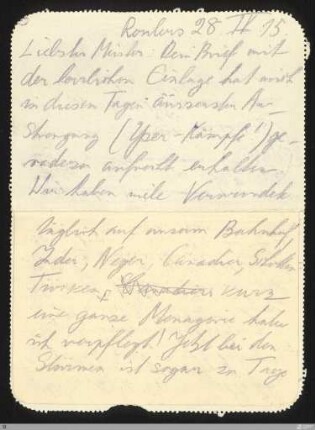 Roulers 28 IV 15
Liebster Meister. Dein Brief mit
der herrlichen Einlage hat mich
in diesen Tagen äusserster An-
strengung (Yper-Kämpfe!) ge-
radezu aufrecht erhalten.
Wir haben viele Verwundete
täglich auf unserm Bahnhof,
Inder, Neger, Canadier, Schotten
Turcos, kurz
eine ganze Menagerie habe
ich verpflegt! Jetzt bei den
Stürmen ist sogar zu Tage